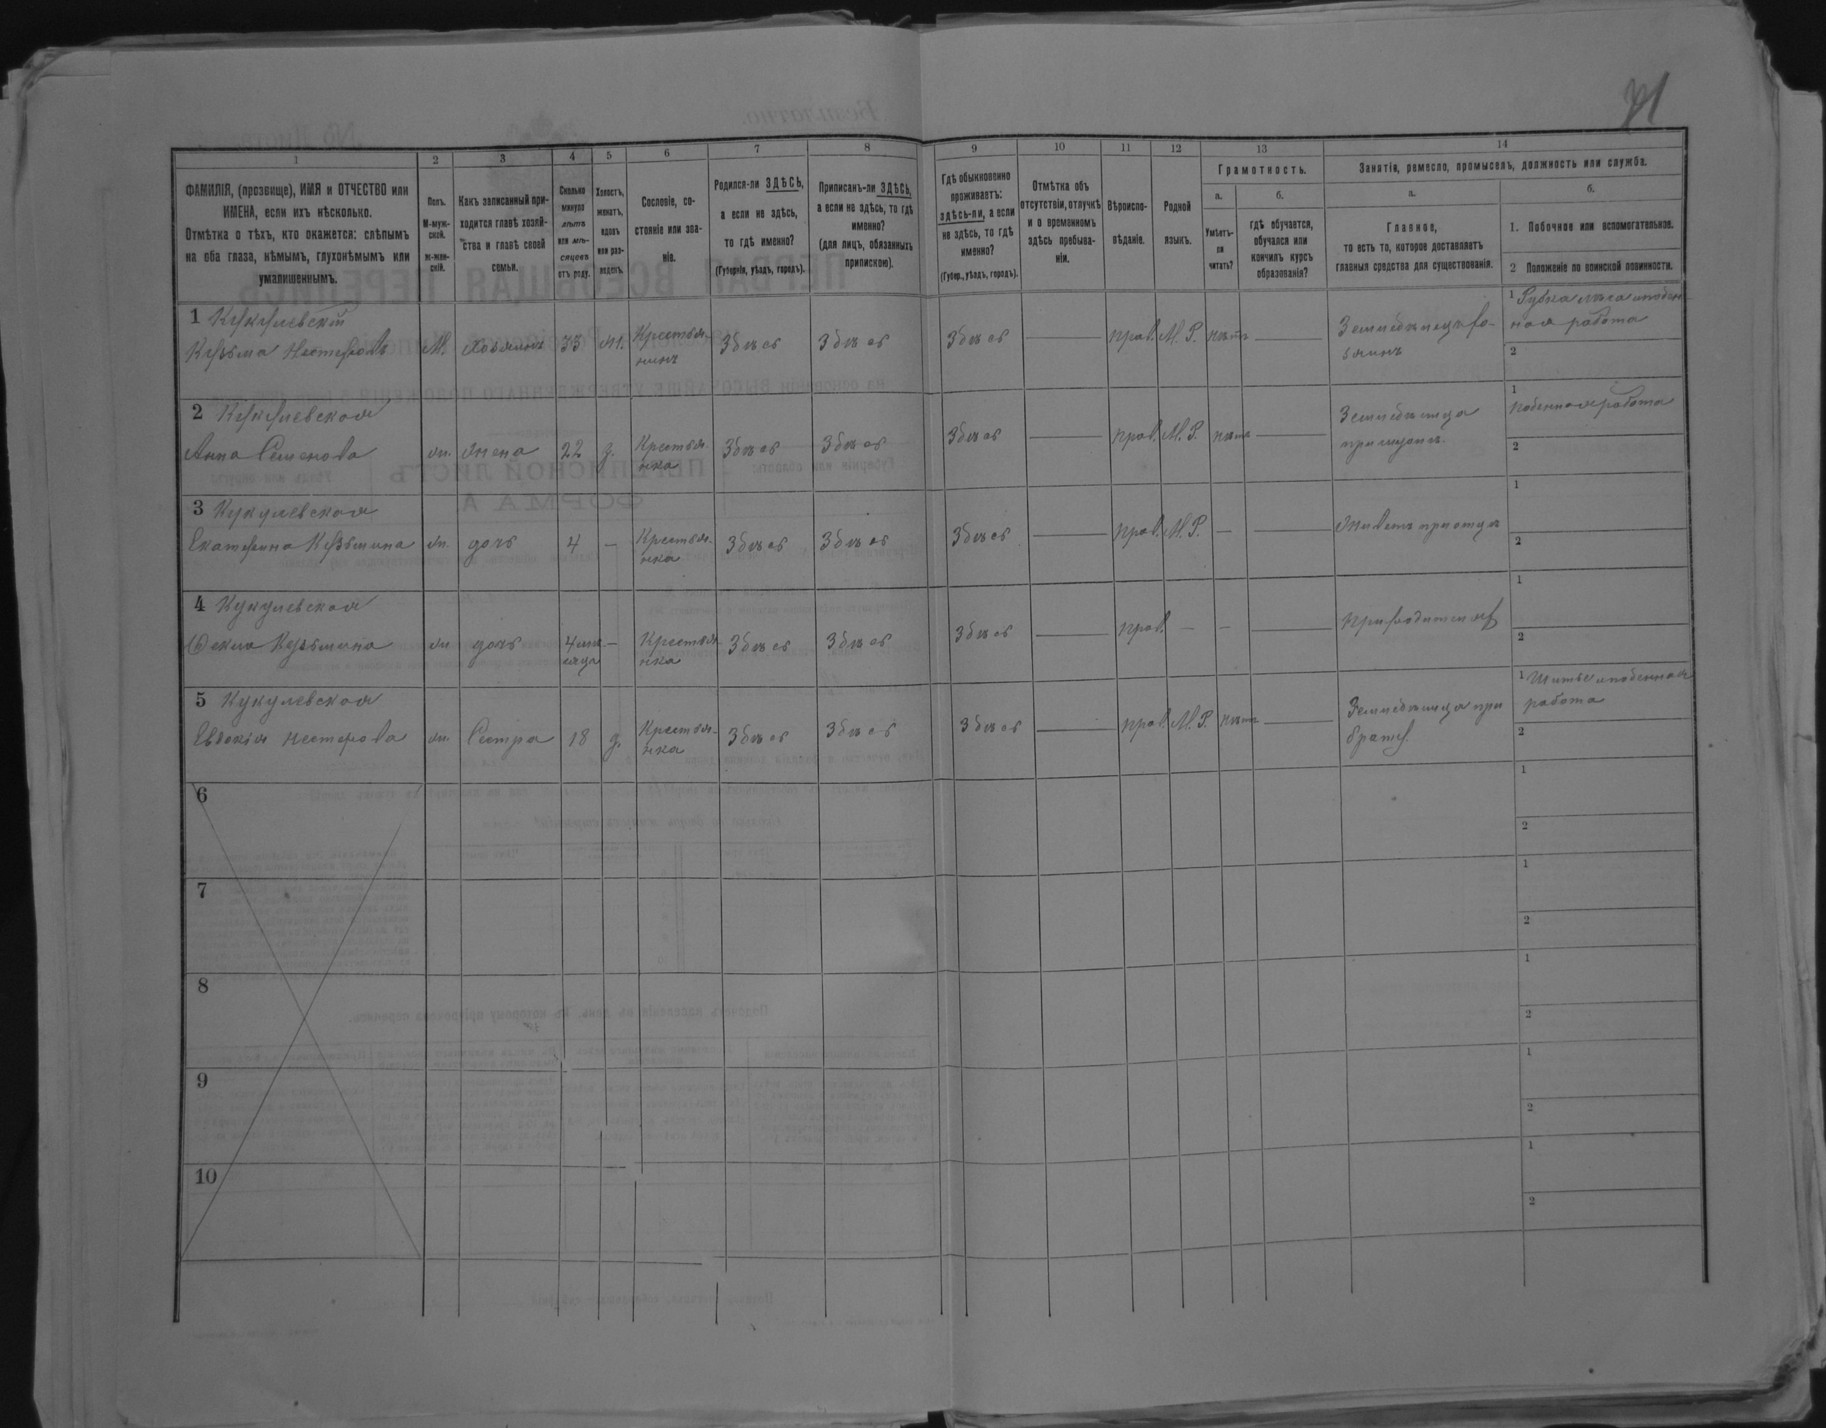 71
1
2
3
4
5
6
7
8
9
10
11
12
13
14
ФАМИЛІЯ, (прозвище), ИМЯ и ОТЧЕСТВО или
ИМЕНА, если ихъ нѣсколько.
Отмѣтка о тѣхъ, кто окажется: слѣпымъ
на оба глаза, нѣмымъ, глухонѣмымъ или
умалишеннымъ.
Полъ.
М-муж-
ской.
Ж-жен-
скій.
Какъ записанный при-
ходится главѣ хозяй-
ства и главѣ своей
семьи.
Сколько
минуло
лѣтъ
или мѣ-
сяцевъ
отъ роду.
Холостъ,
женатъ,
вдовъ
или раз-
веденъ.
Сословіе, со-
стояніе или зва-
ніе.
Родился-ли ЗДѢСЬ,
а если не здѣсь,
то гдѣ именно?
(Губернія, уѣздъ, городъ).
Приписанъ-ли ЗДѢСЬ,
а если не здѣсь, то гдѣ
именно?
(для лицъ, обязанныхъ
припискою).
Гдѣ обыкновенно
проживаетъ:
здѣсь-ли, а если
не здѣсь, то гдѣ
именно?
(Губер., уѣздъ, городъ).
Отмѣтка объ
отсутствіи, отлучкѣ
и о временномъ
здѣсь пребыва-
ніи.
Вѣроиспо-
вѣданіе.
Родной
языкъ.
Грамотность.
а.
Умѣетъ-
ли
читать?
б.
гдѣ обучается,
обучался или
кончилъ курсъ
образованія?
Занятія, ремесло, промыселъ, должность или служба.
а.
Главное,
то есть то, которое доставляетъ
главныя средства для существованія.
б.
1. Побочное или вспомогательное.
2 Положеніе по воинской повинности.
1 Кукулевскій
Кузьма Нестеровъ М. хозяинъ 33 ж. Крестья-
нинъ Здѣсь Здѣсь Здѣсь — прав. М. Р. нѣтъ — Земледѣлецъ хо-
зяинъ
1 Рубка лѣса и поден-
ная работа
2
2 Кукулевская
Анна Семенова ж. жена 22 з. Крестья-
нка Здѣсь Здѣсь Здѣсь — прав. М. Р. нѣтъ — Земледѣлица
при мужѣ.
1 поденная работа
2
3 Кукулевская
Екатерина Кузьмина ж. дочь 4 — Крестья-
нка Здѣсь Здѣсь Здѣсь — прав. М. Р. — — Живетъ при отцѣ
1
2
4 Кукулевская
Ѳекла Кузьмина ж. дочь 4 мѣ-
сяца — Крестья-
нка Здѣсь Здѣсь Здѣсь — прав. — — —
1
2
5 Кукулевская
Евдокія Нестерова ж. Сестра 18 д. Крестья-
нка Здѣсь Здѣсь Здѣсь — прав. М. Р. нѣтъ — Земледѣлица при
братѣ.
1 Шитье и поденная
работа
2
6
1
2
7
1
2
8
1
2
9
1
2
10
1
2